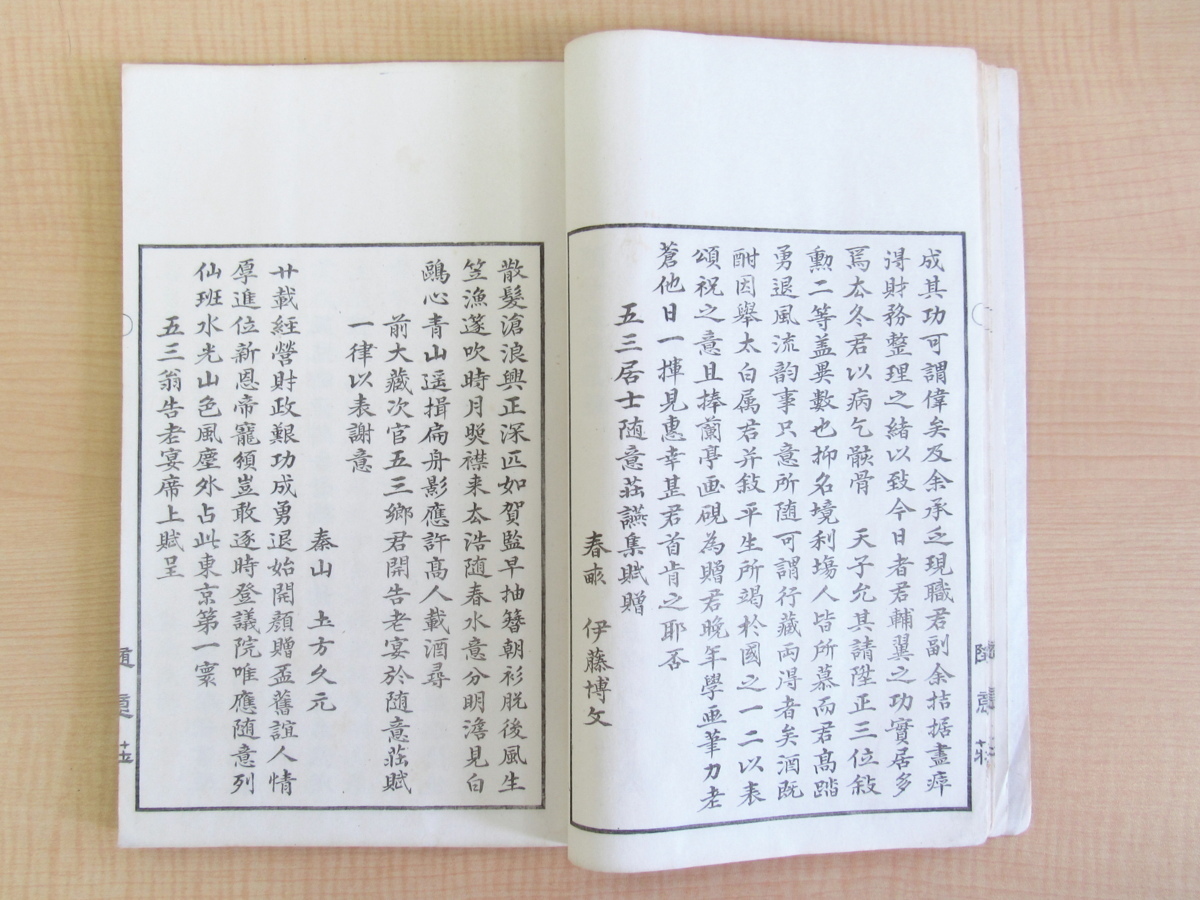 成其功可謂偉矣及余承乏現職君副余拮据盡瘁
得財務整理之緒以致今日者君輔翼之功實居多
焉去冬君以病乞骸骨　天子允其請陞正三位敍
勳二等盖異數也抑名境利塲人皆所慕而君髙踏
勇退風流韵事只意所随可謂行藏兩得者矣酒既
酣因舉太白属君并敍平生所竭於國之一二以表
頌祝之意且捧蘭亭画硯為贈君晩年學画筆力老
蒼他日一揮見惠幸甚君首肯之耶否
五三居士随意莊讌集賦贈
春畝　伊藤博文
散髮滄浪興正深匹如賀監早抽簪朝衫脱後風生
笠漁篴吹時月熨襟来去浩随春水意分明澹見白
鷗心青山遥揖扁舟影應許髙人載酒尋
前大藏次官五三鄉君開告老宴於随意莊賦
一律以表謝意
秦山　土方久元
廿載經營財政艱功成勇退始開顏贈盃舊誼人情
厚進位新恩帝寵頒豈敢逐時登議院唯應随意列
仙班水光山色風塵外占此東京第一寰
五三翁告老宴席上賦呈
隨意莊
隨意莊